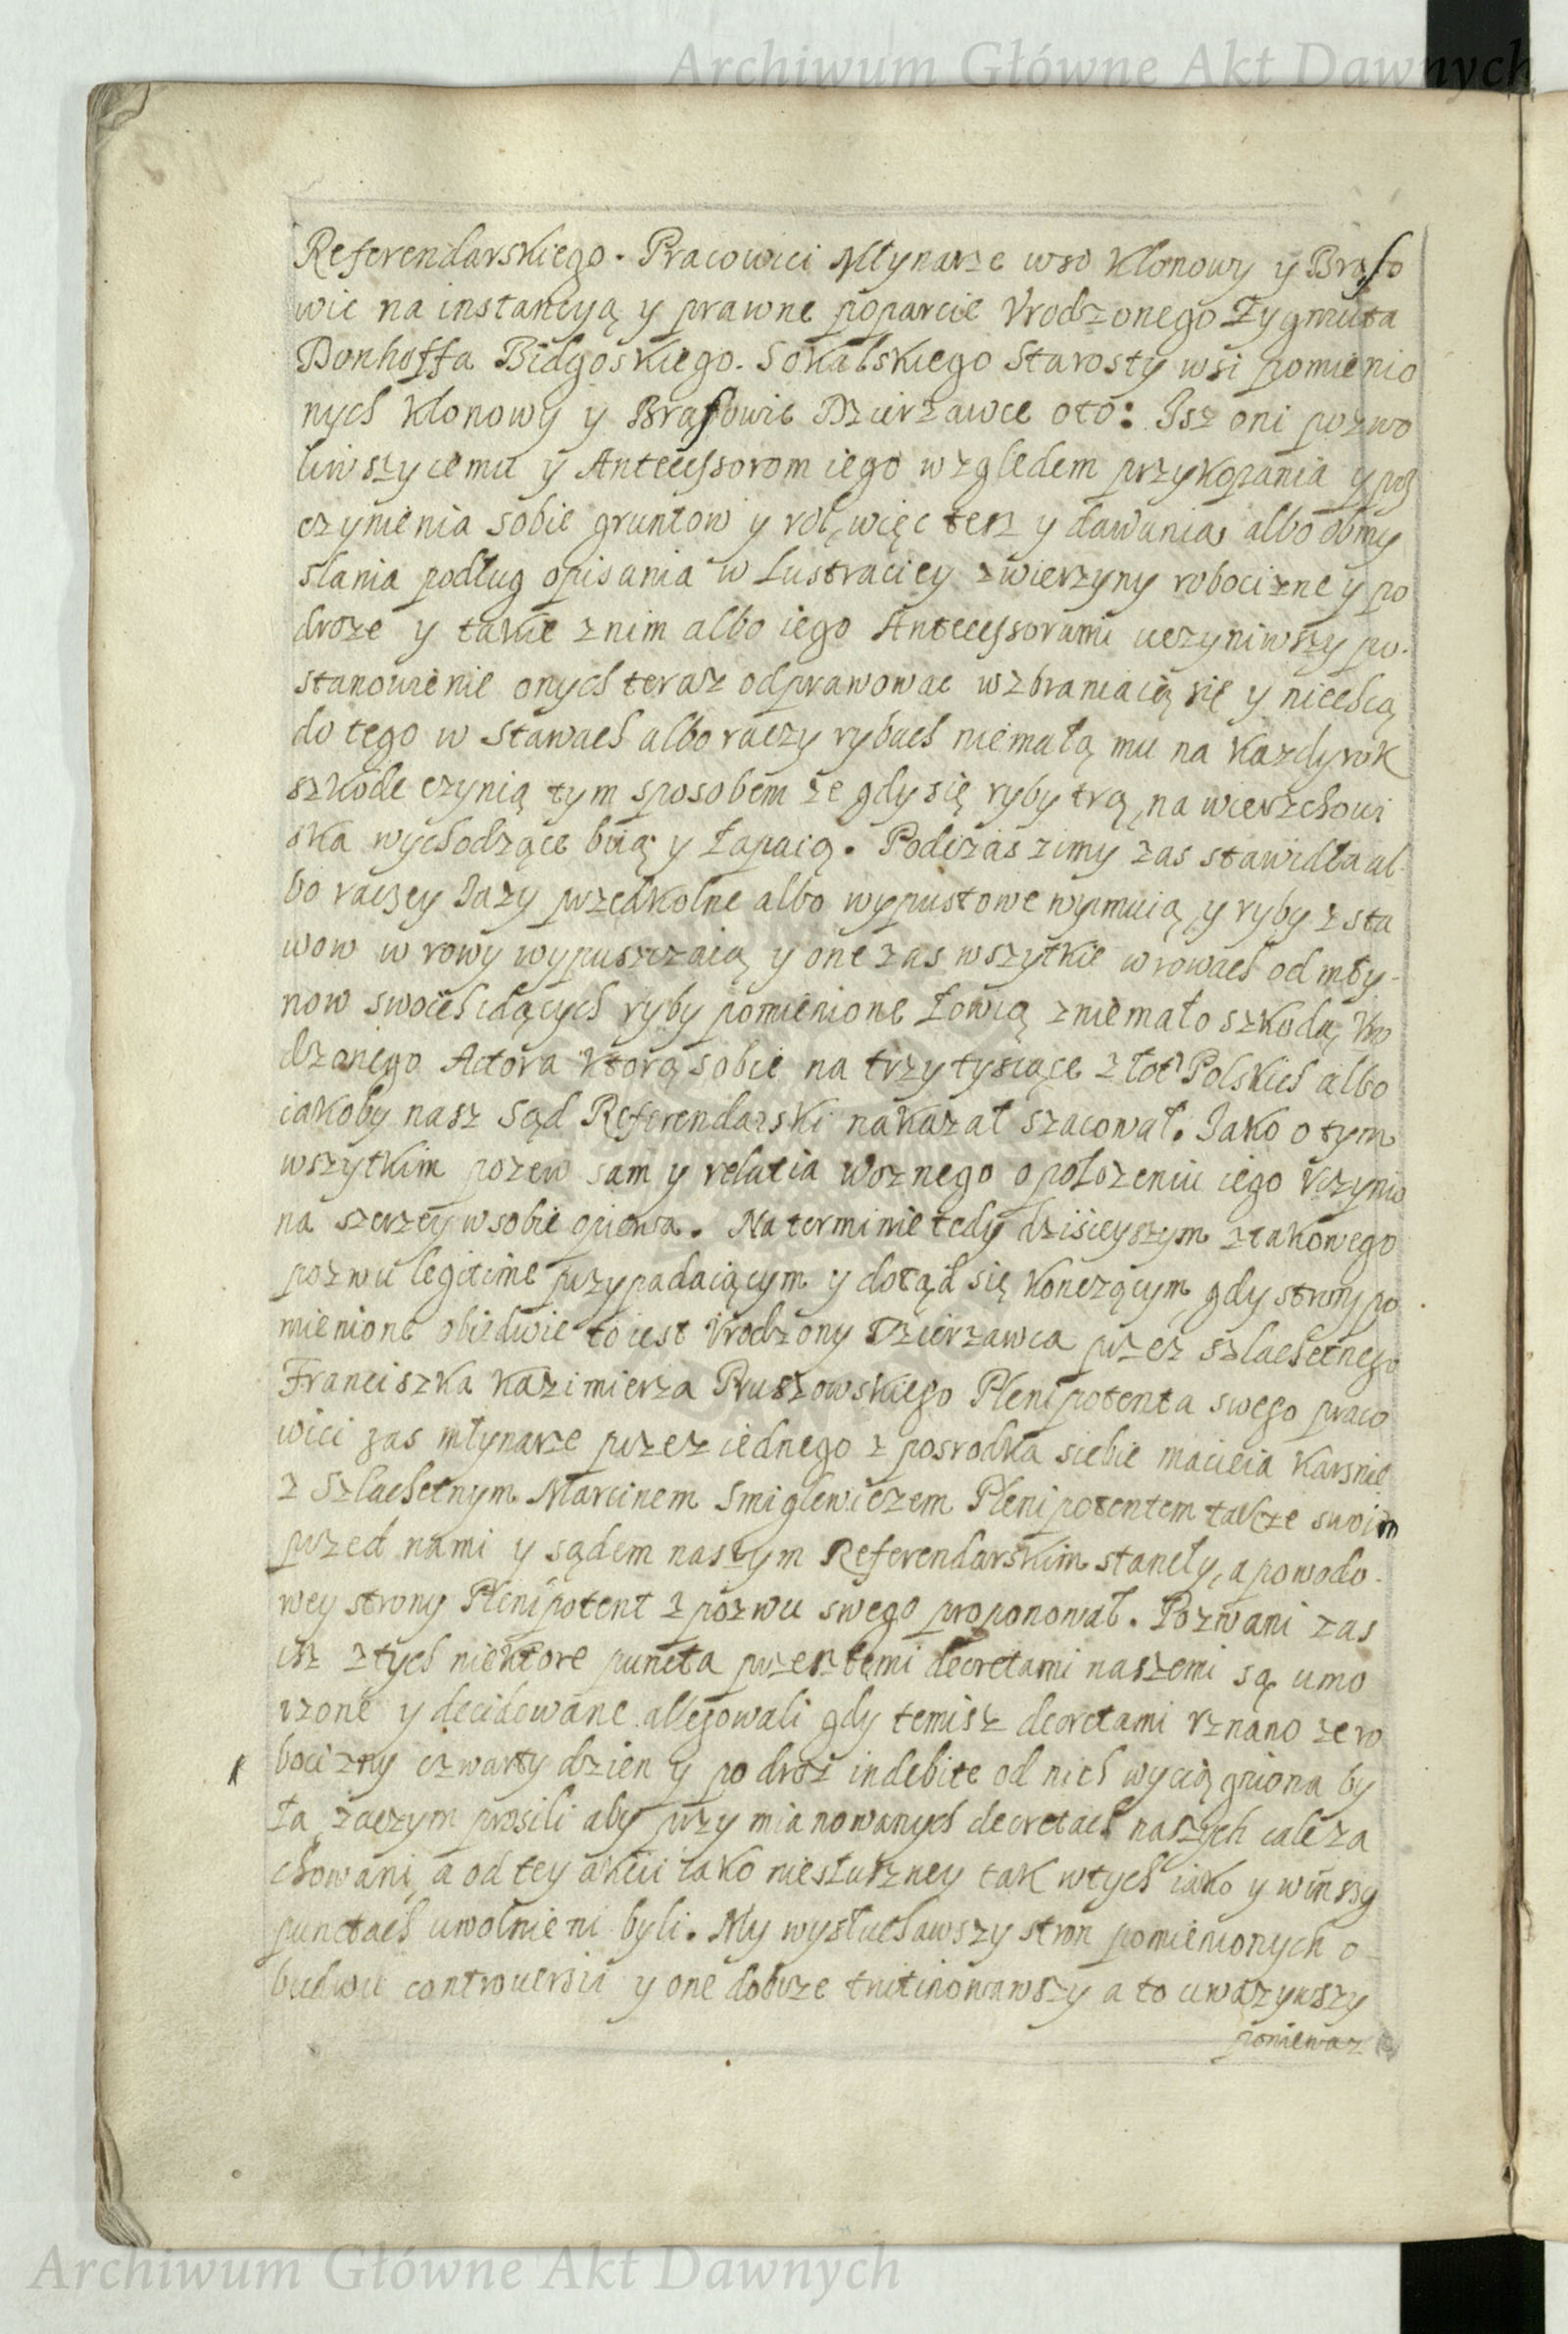 Archiwum Główne Akt Dawnych
Referendarskiego. Pracowici Młynarze wso Klonowy y Brąso
wic na instantyą y prawne poparcie Vrodzonego Zygmuta
Donhoffa Bidgoskiego. Sokalskiego Starosty wsi pomienio
nych Klonowy y Brąsowic Dzierzawce oto: Isz oni pozwo
liwszy iemu y Antecessorom iego względem przykopania y
czynienia sobie gruntow y rol, więc tesz y dawania albo obmy
slania podług opisania w Lustraciey zwierzyny robocizne y po
droze y takie znim albo iego Antecessorami uczyniwszy po.
stanowienie onych teraz odprawowac wzbraniaią się y niechcą
do tego w stawach albo raczy rybach niemałą mu na kazdy rok
szkode czynią tym sposobem ze gdy się ryby trą, na wierzchowi
ska wychodzące biią y łapaią. Podczas zimy zas stawidła al-
bo raczey Jazy przedkolne albo wypustowe wyimuią, y ryby z sta
wow w rowy wypuszczaią y one zas wszytkie w rowach od mły-
now swoich idących ryby pomienione łowią z niemało szkodą Vro
dzonego Actora ktorą sobie na trzy tysiące złot Polskich albo
iakoby nasz Sąd Referendarski nakazał szacował. Jako o tym
wszytkim pozew sam y relatia woznego o położeniu iego vczynio
na szerzey w sobie opiewa. Na terminie tedy dzisieyszym z takowego
pozwu legitime przypadaiącym y dotąd się kończącym, gdy strony po
mienione obiedwie to iest Vrodzony Dzierzawca przez szlachetnego
Franciszka Kazimierza Pruszowskiego Plenipotenta swego praco
wici zas młynarze przez iednego z posrodka siebie macieia Karsnie
z Szlachetnym Marcinem Smiglewiczem Plenipotentem takze swoim
przed nami y sądem naszym Referendarskim stanęły, a powodo.
wey strony Plenipotent z pozwu swego proponował. Pozwani zas
isz z tych niektore puncta przeszłemi decretami naszemi są umo
rzone y decidowane allegowali gdy temisz decretami vznano ze ro
bocizny czwarty dzien y podroż indebite od nich wyciągniona by
ła, zaczym prosili aby przy mianowanych decretach naszych cale za
chowani, a od tey akcii iako niesłuszney tak w tych iako y w inszy
punctach uwolnieni byli. My wysłuchawszy stron pomienionych o-
budwu controuersii y one dobrze trutinowawszy a to uwazywszy
poniewaz
Archiwum Główne Akt Dawnych